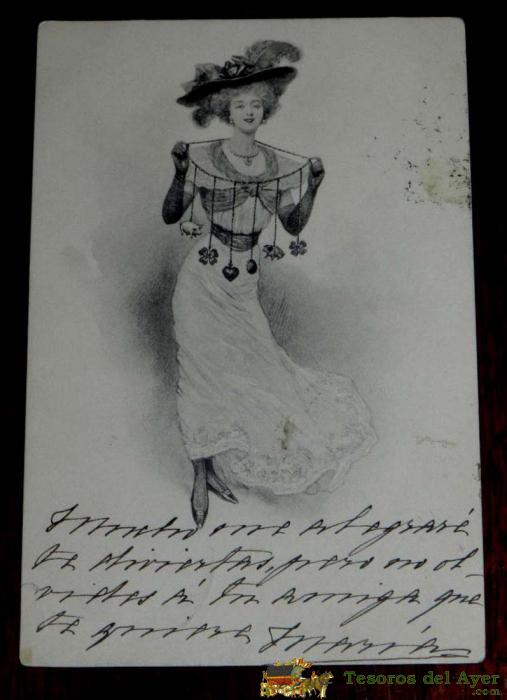 Mucho me alegraré
te diviertas, pero no ol-
vides á tu amiga que
te quiere María
Tesoros del Ayer
.com